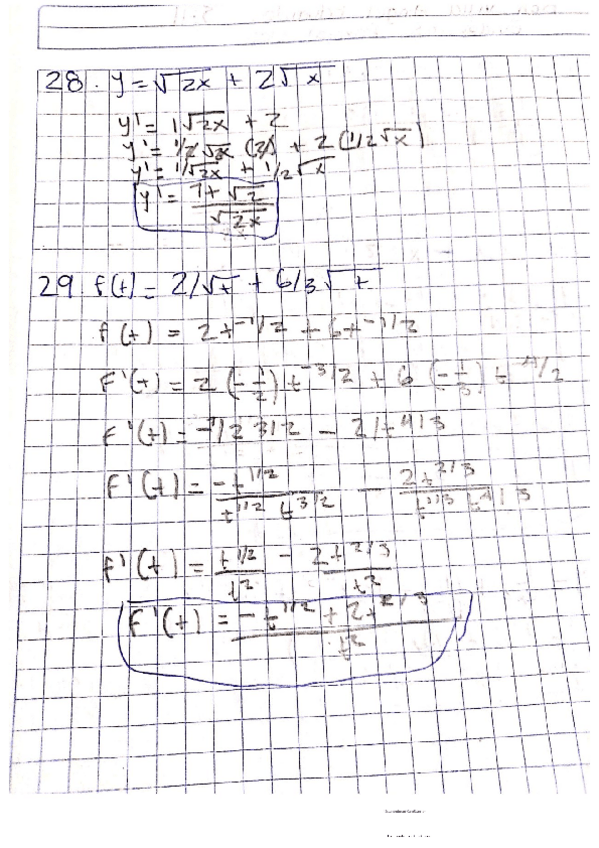 28. y = √2x + 2√x
y' = 1√2x + 2
y' = 1/2√2x (2) + 2 (1/2√x)
y' = 1/√2x + 1/2√x
y' = 1+√2 / √2x
29 f(t) = 2/√t + 6/3√t
f(t) = 2t^-1/2 + 6t^-1/2
F'(t) = 2(-1/2)t^-3/2 + 6(-1/3)t^-4/2
F'(t) = -1/2 3/2 - 2/t4/3
F'(t) = -t^1/2 / t^1/2 t^3/2 - 2t^2/3 / t^1/3 t^4/3
f'(t) = t^1/2 / t^2 - 2t^2/3 / t^2
F'(t) = -t^1/2 + 2t^2/3 / t^2